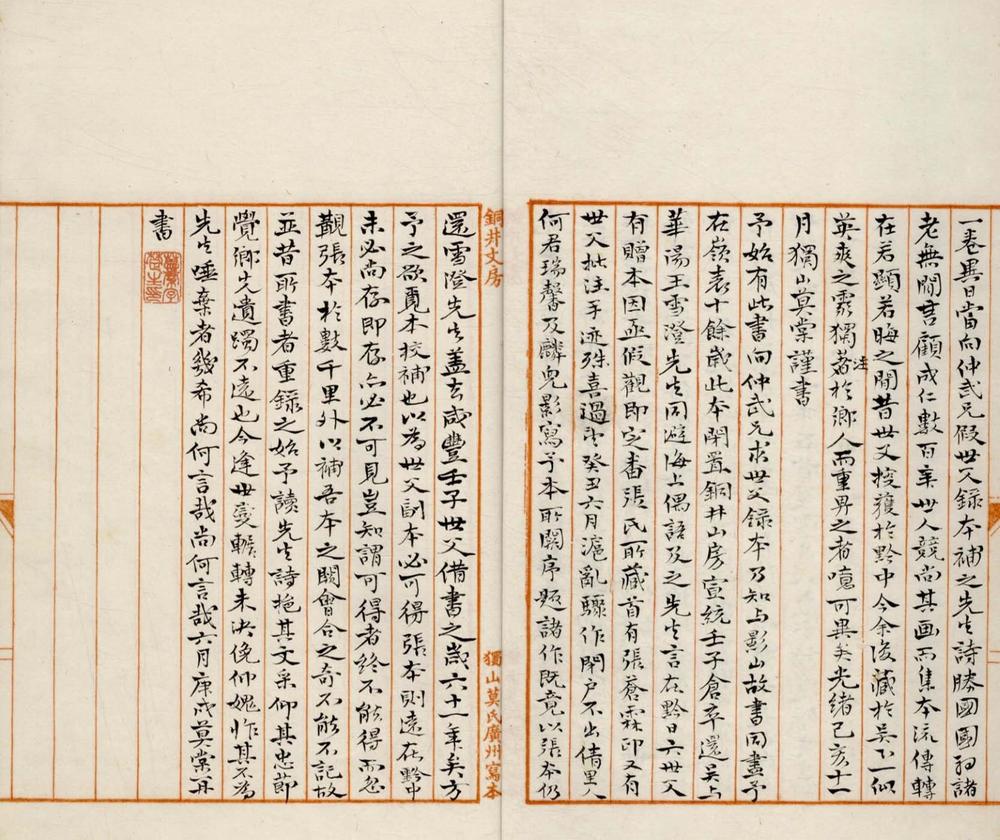 一卷異日當向仲武兄假世父錄本補之先生詩勝國國初諸
老無閒言顧成仁數百年世人競尚其画而集本流傳轉
在若顯若晦之閒昔世父搜獲於黔中今余復藏於吳下似
英爽之靈獨注於鄉人而重畀之者噫可異矣光緒己亥十一
月獨山莫棠謹書
予始有此書向仲武兄求世父錄本乃知与影山故書同盡予
在嶺表十餘歲此本閉置銅井山房宣統壬子倉卒還吳上
華陽王雪澄先生同避海上偶語及之先生言在黔日六世父
有贈本因亟假觀即定番張氏所藏首有張蒼霖印又有
世父批注手迹殊喜過望癸丑六月滬亂驟作閉戶不出倩里人
何君瑞馨及麟兒影寫予本所闕序題諸作既竟以張本仍
銅井文房
獨山莫氏廣州寫本
還雪澄先生蓋去咸豐壬子世父借書之歲六十一年矣方
予之欲覓本校補也以為世父副本必可得張本則遠在黔中
未必尚存即存亦必不可見豈知謂可得者終不能得而忽
覩張本於數千里外以補吾本之闕會合之奇不能不記故
並昔所書者重錄之始予讀先生詩挹其文采仰其忠節
覺鄉先遺躅不遠也今逢世變輾轉未決俛仰媿怍其不為
先生唾棄者幾希尚何言哉尚何言哉六月庚戌莫棠再
書